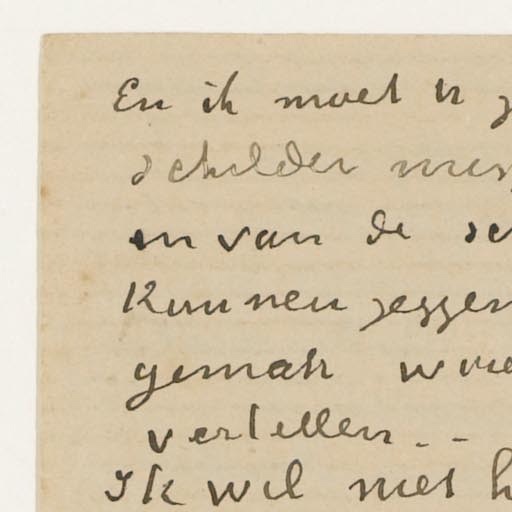 En ik moet er
schilder
en van de
kunnen zeggen
gemak
vertellen..
Ik wil niet